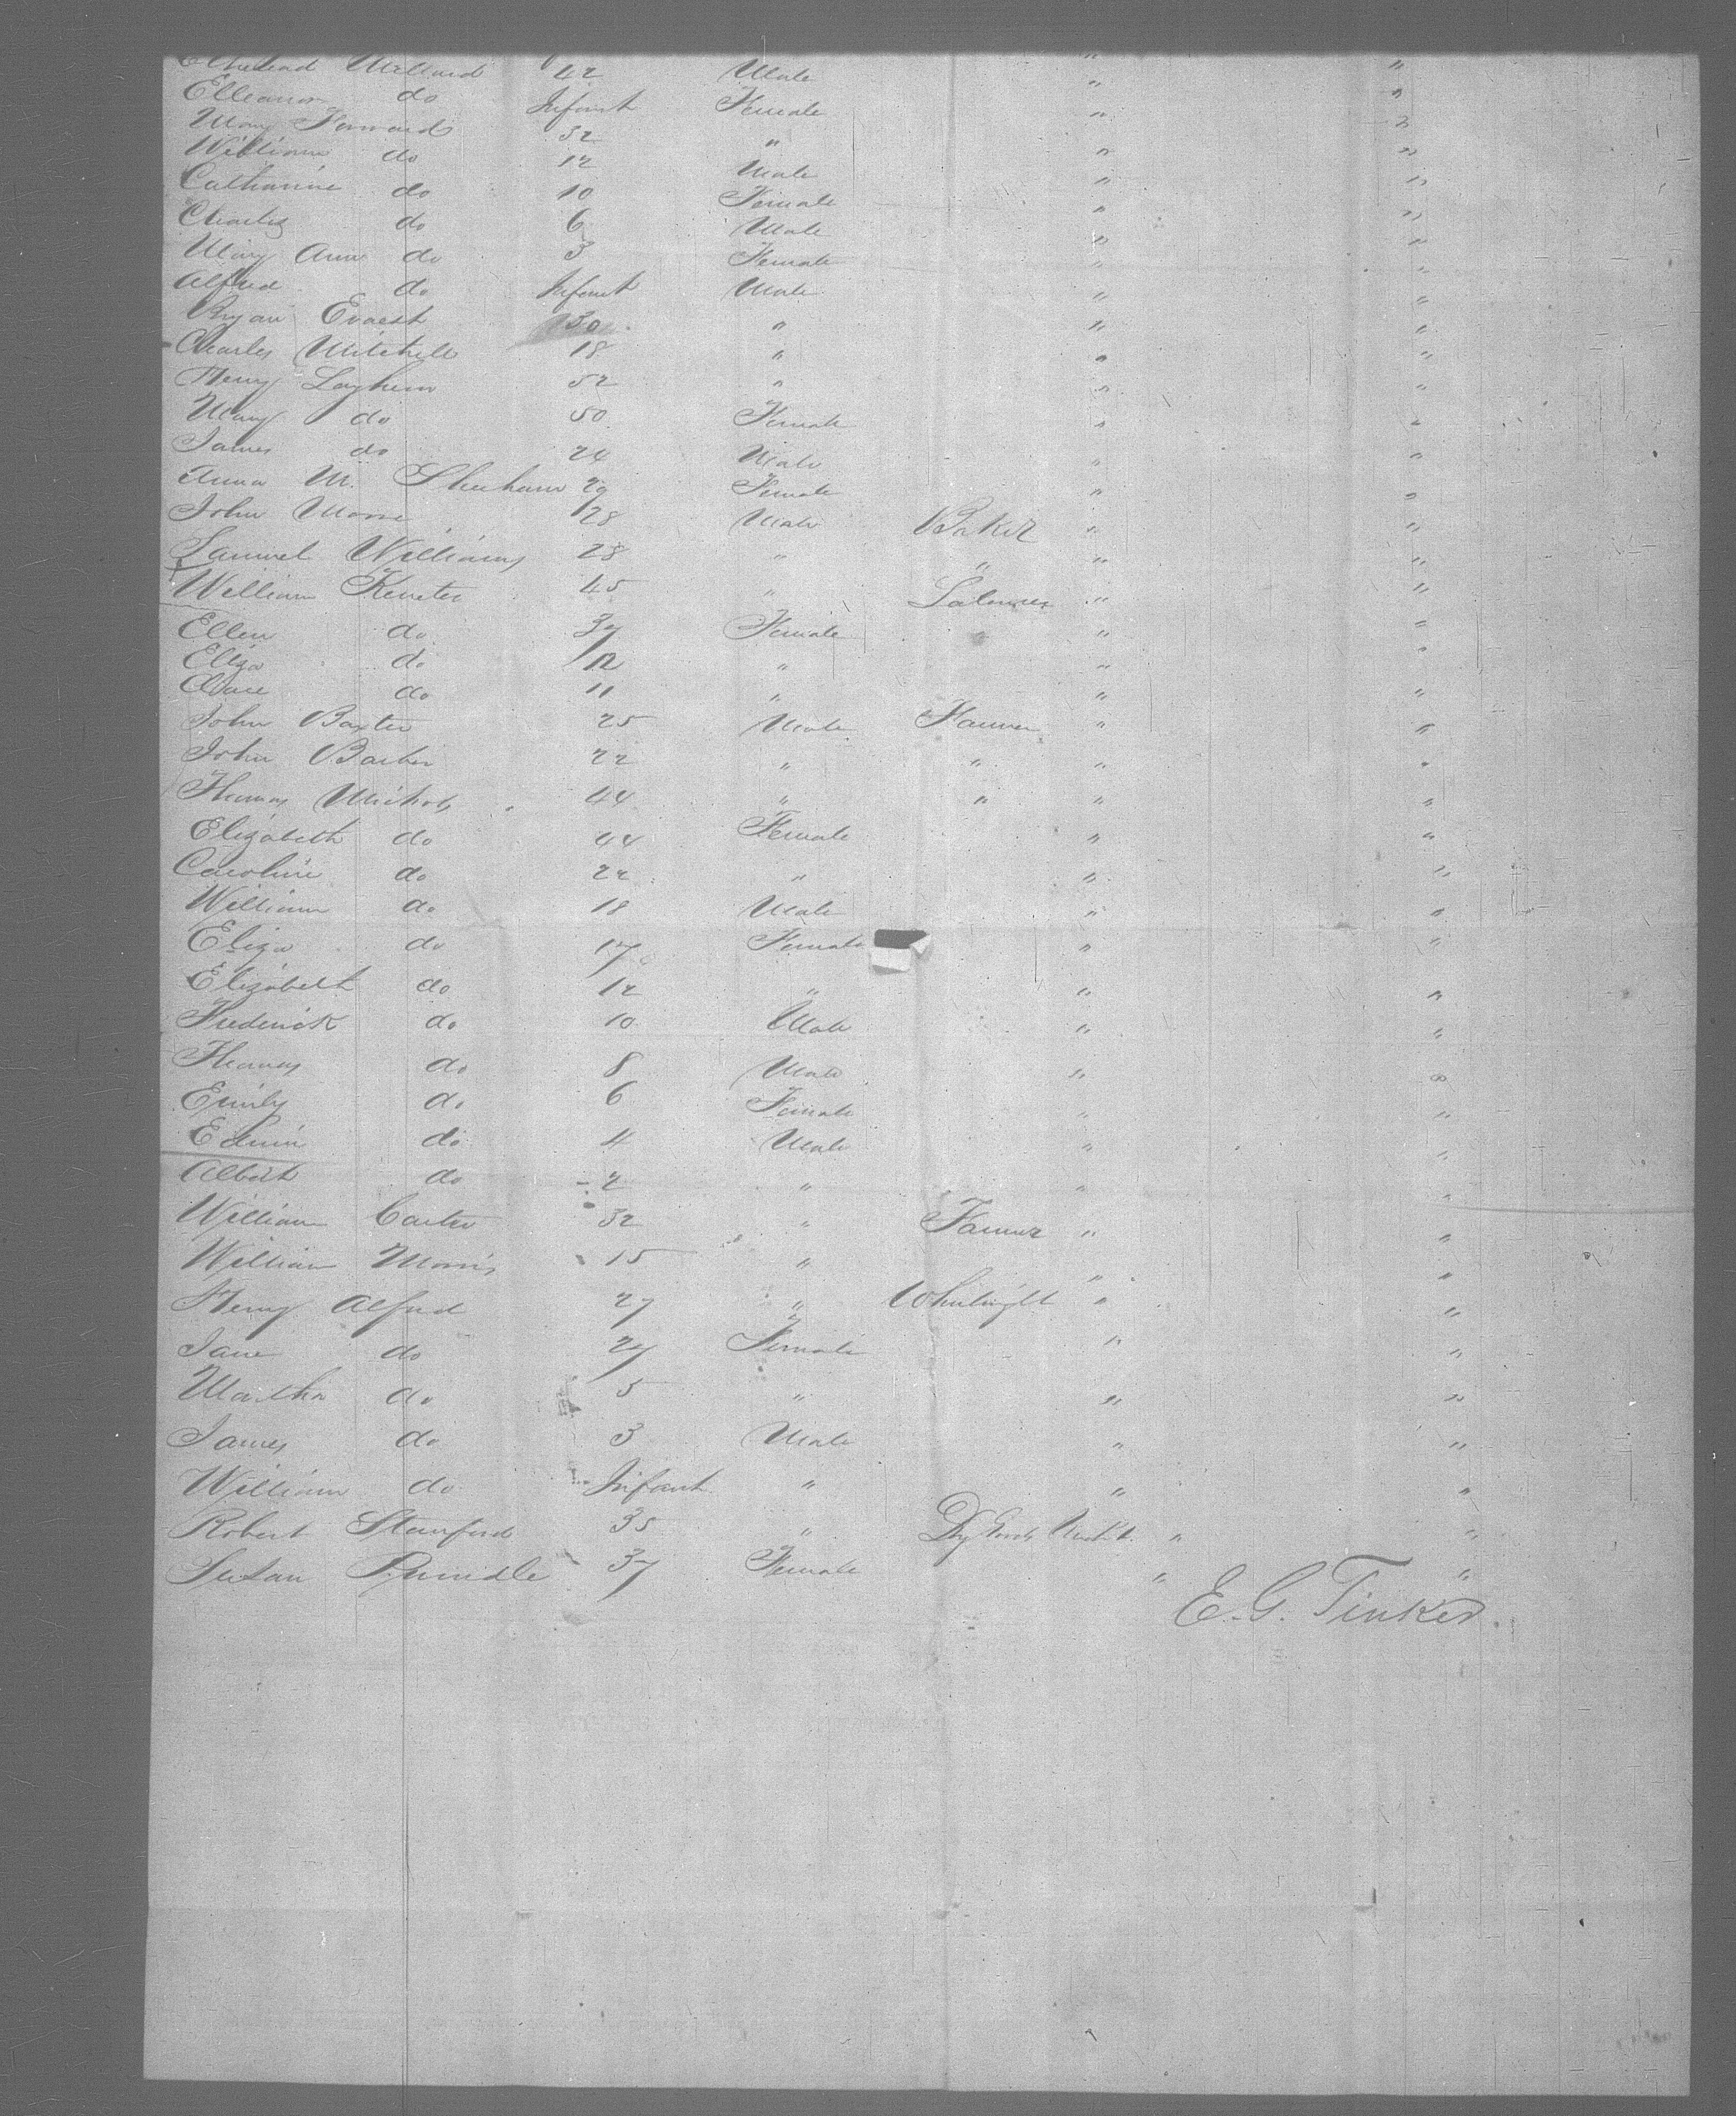 Willard 42 Male " "
Elleanor do Infant Female " "
Mary 32 " " "
William do 12 Male " "
Catharine do 10 Female " "
Charles do 6 Male " "
Mary Ann do 3 Female " "
Alfred do Infant Male " "
Bryan 30 " " "
Charles Mitchell 18 " " "
Henry 52 " " "
Mary do 50 Female " "
James do 24 Male " "
Anna M. Female " "
John Morse 28 Male Baker " "
Samuel Williams 28 " " " "
William 45 " " "
Ellen do 37 Female " "
Eliza do 12 " " "
do 11 " " "
John Baxter 25 Male Farmer " "
John Barber 22 " " " "
Thomas Nichols 44 " " " "
Elizabeth do 44 Female " "
Caroline do 22 " " "
William do 18 Male " "
Eliza do 17 Female " "
Elizabeth do 12 " " "
Frederick do 10 Male " "
Thomas do 8 Male " "
Emily do 6 Female " "
Edwin do 4 Male " "
Albert do 2 " " "
William Carter 32 " Farmer " "
William Morris 15 " " "
Henry Alfred 27 " "  "
Jane do 27 Female " "
Martha do 5 " " "
James do 3 Male " "
William do Infant " " "
Robert Stanford 35 " Dry Goods " "
Susan 37 Female " "
E. G. Tinker.